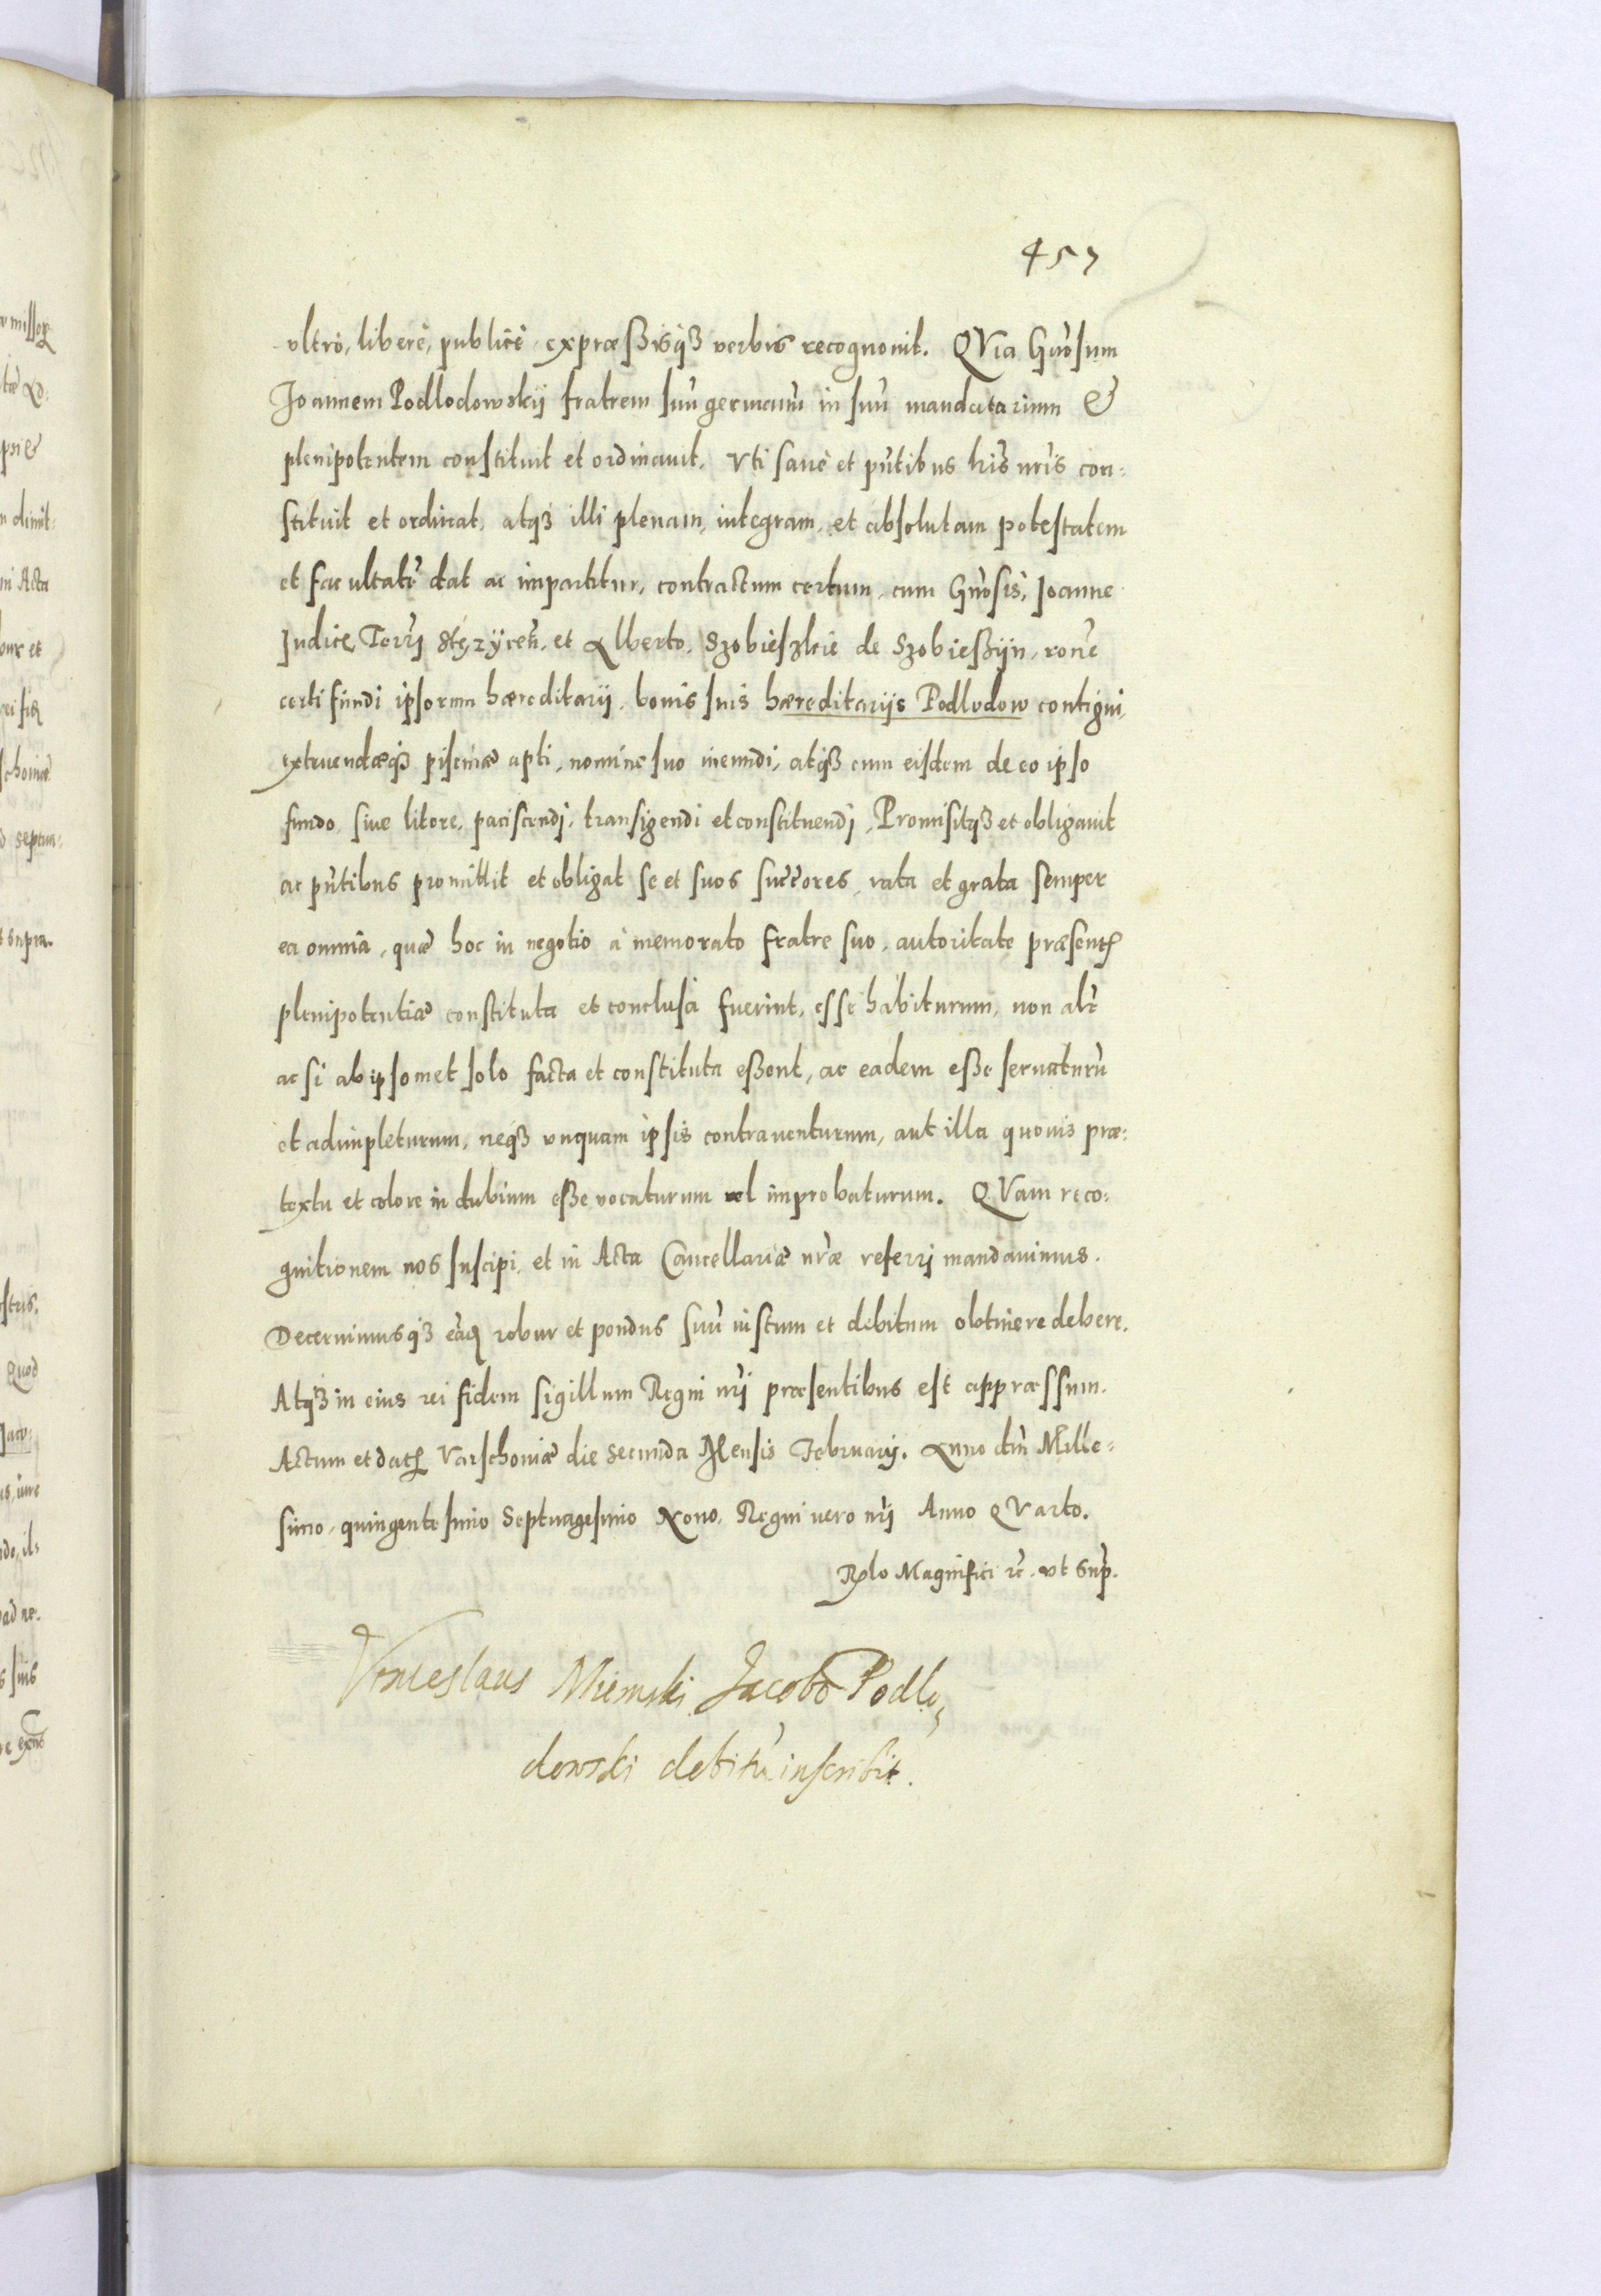 457
ultrò, liberè, publicè expræßisq₃ verbis recognouit. QVia Gn̄osum
Joannem Podlodowskij fratrem suū germanū in suū mandatarium &
plenipotentem constituit et ordinauit. Vti sanè et pn̄tibus his nr̄is con:
stituit et ordinat, atq₃ illi plenam, integram, et absolutam potestatem
et facultatē dat ac impartitur, contractum certum, cum Gn̄osis, Joanne
Judice Terrj Stęzÿceñ, et Alberto, Szobieszkie de Szobießÿn, ron̄e
certi fundi ipsorum hæreditarij, bonis suis hæreditarijs Podlodow contigui,
extruendæq₃ piscinæ apti, nomine suo ineundi, atq₃ cum eisdem de eo ipso
fundo, siue litore, paciscendj, transigendi et constituendj, Promisitq₃ et obligauit
ac pn̄tibus promittit et obligat se et suos succ̄ores, rata et grata semper
ea omnia, quæ hoc in negotio à memorato fratre suo, autoritate præsentꝭ
plenipotentiæ constituta et conclusa fuerint, esse habiturum, non alr̄
ac si ab ipsomet solo facta et constituta eßent, ac eadem eße seruaturū
et adimpleturum, neq₃ vnquam ipsis contrauenturum, aut illa quouis præ:
textu et colore in dubium eße vocaturum vel improbaturum. QVam reco:
gnitionem nos suscipi, et in Acta Cancellariæ nr̄æ referrj mandauimus.
Decernimusq₃ eāꝗ robur et pondus suū iustum et debitum obtinere debere.
Atq₃ in eius rei fidem sigillum Regni nr̄j præsentibus est appræssum.
Actum et datꝭ Varschoniæ die Secunda Mensis Februarij. Anno dn̄i Mille:
simo, quingentesimo Septuagesimo Nono, Regni vero nr̄j Anno QVarto.
Rel̄o Magnifici ꝛc̄. vt Sup̄.
Venceslaus Miemski Jacobo Podlo,
dowski debitū inscribit.